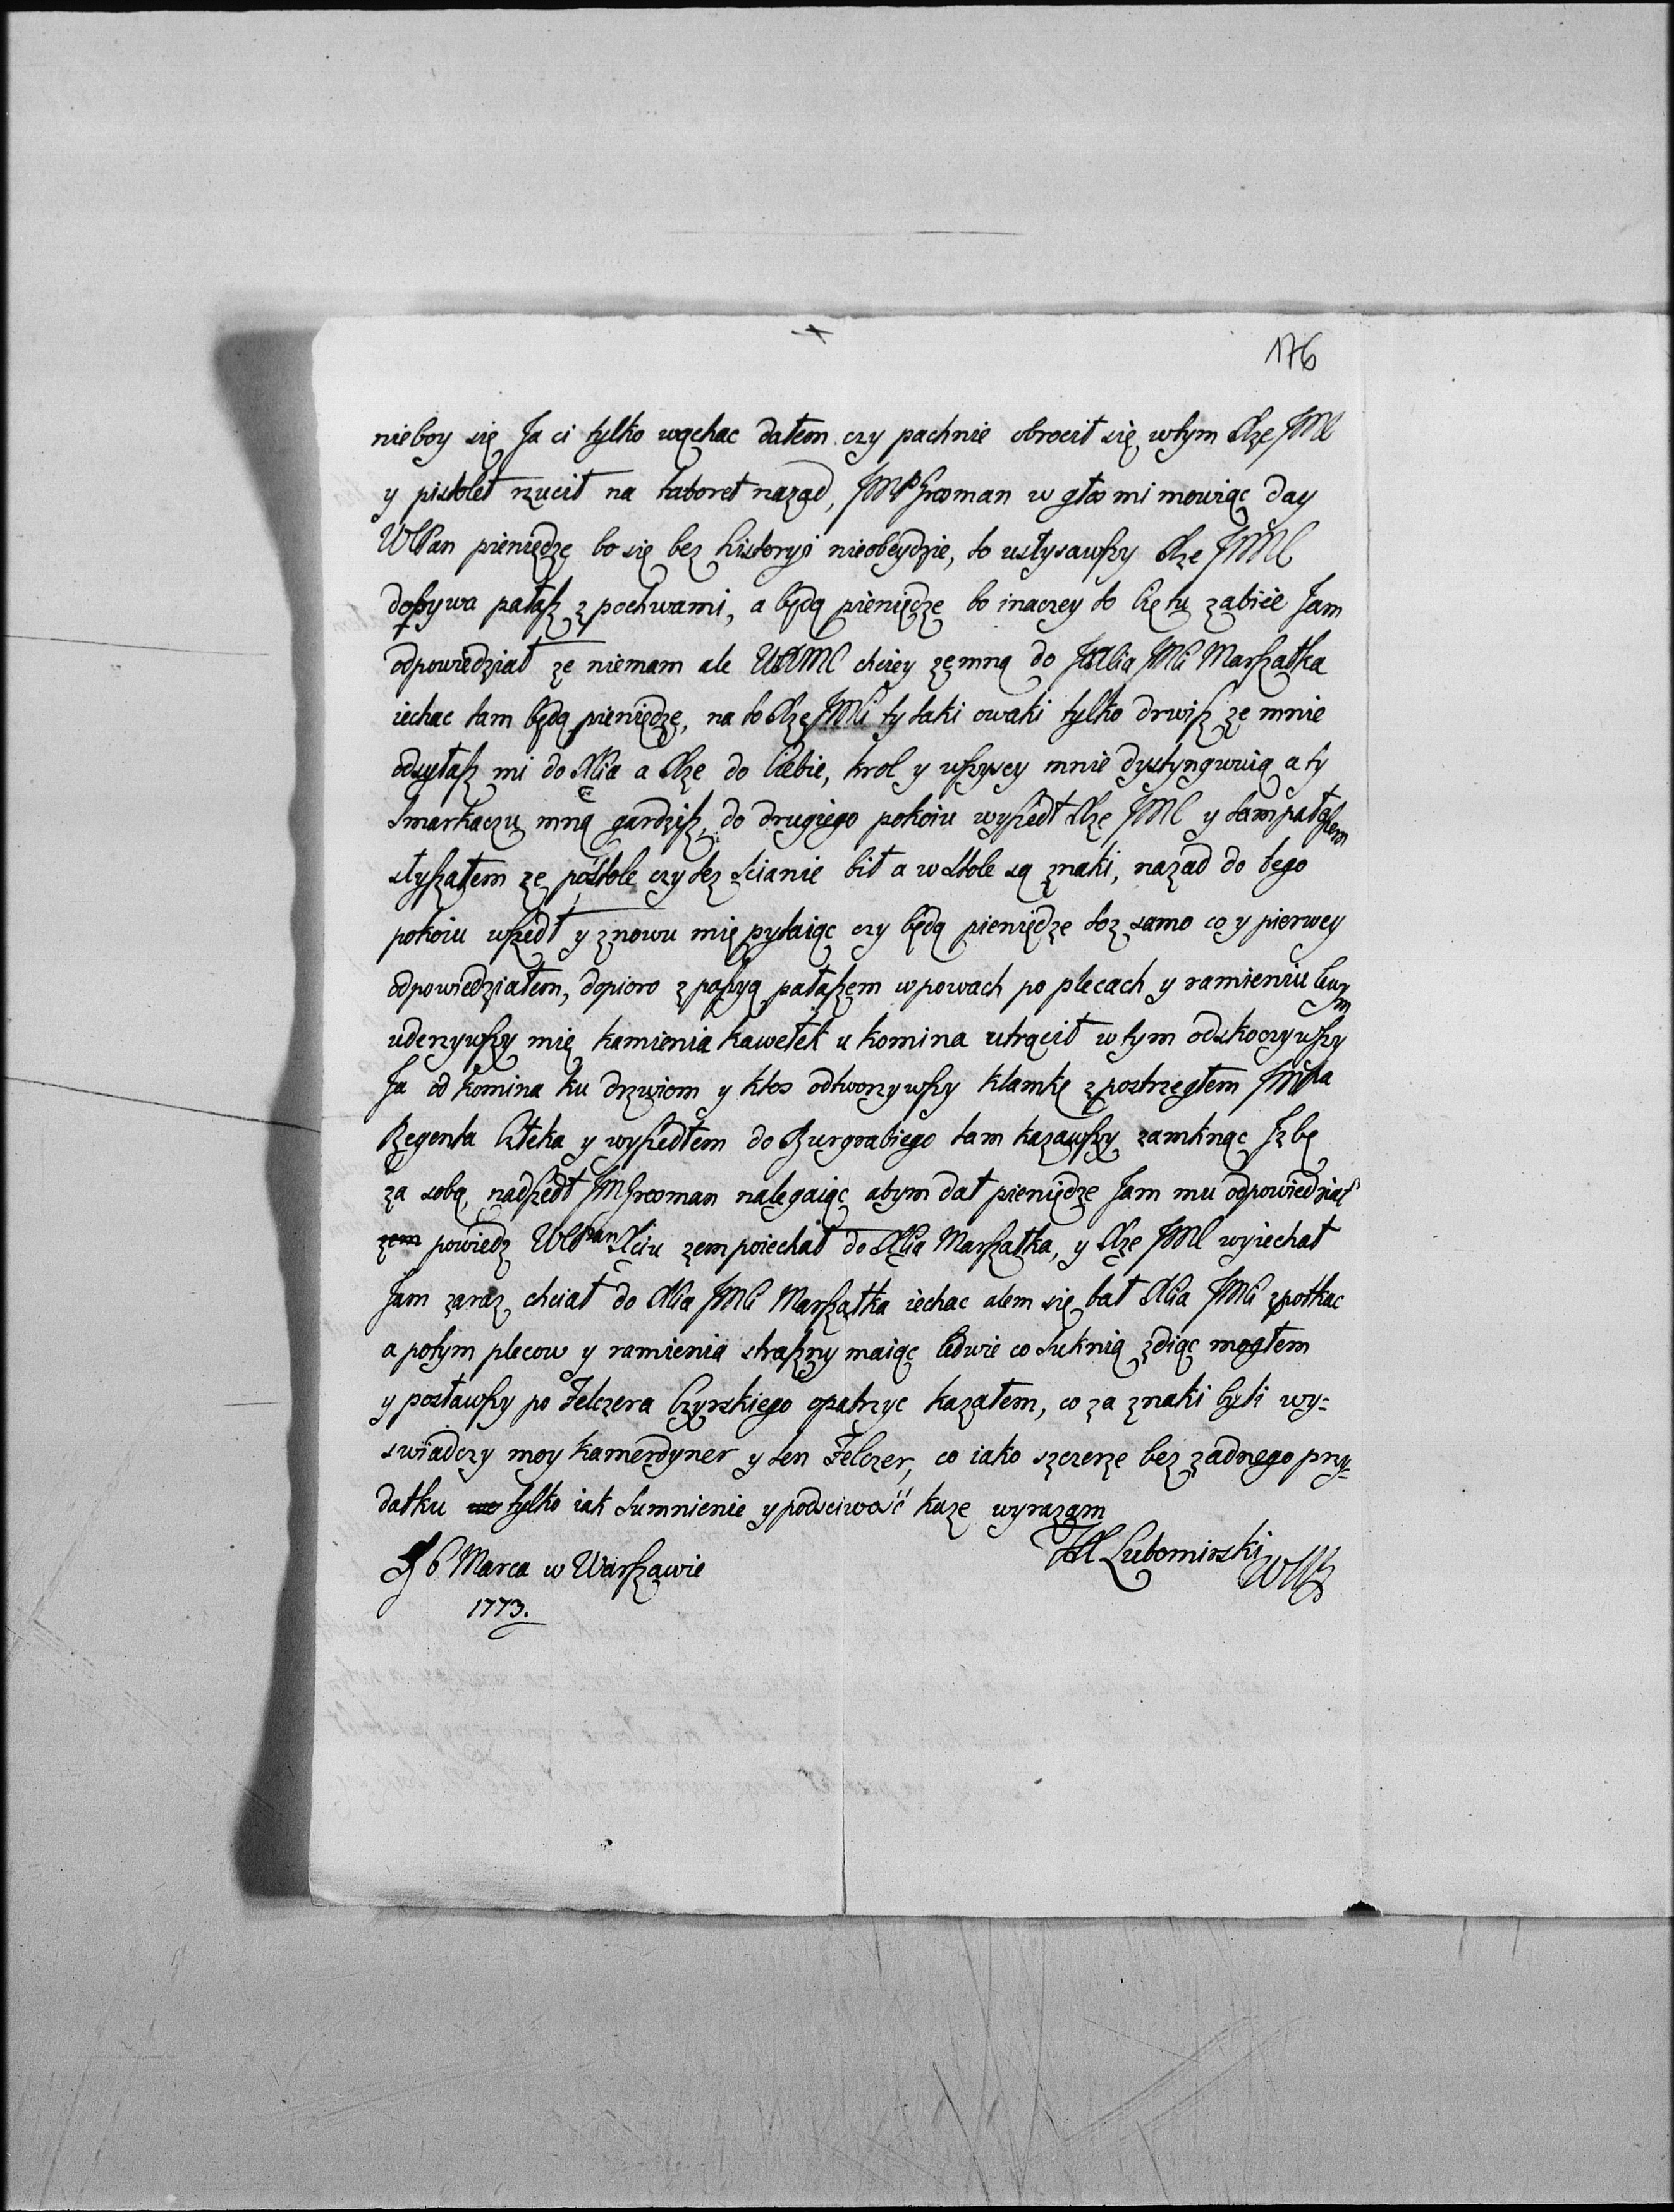 176
nieboy się Ja ci tylko wąchac dałem czy pachnie obrocił się wtym Xżę JMC
y pistolet rzucił na taboret nazad, JMP Grooman w głos mi mowiąc day
WCPan pieniędze bo się bez historyi nieobeydzie, to usłysawszy Xże JMC
dobywa pałasz z pochwami, a będą pieniędze bo inaczey to Cię tu zabiie Jam
odpowiedział ze niemam ale WXMC chciey zemną do JOXcia JMCi Marszałka
iechac tam będą pieniędze, na to Xżę JMC ty taki owaki tylko drwisz ze mnie
odsyłasz mi do Xcia a Xże do Ciebie, krol y wszyscy mnie dystyngwuią a ty
Smarkaczu mną gardzisz, do drugiego pokoiu wyszedł Xże JMC y tam pałaszem
słyszałem ze po stole czy tez scianie bił a w Stole są znaki, nazad do tego
pokoiu wszedł y znowu mię pytaiąc czy będą pieniędze toz samo co y pierwey
odpowiedziałem, dopioro z pasyą pałaszem w powach po plecach y ramieniu lewym
uderzywszy mię kamienia kawełek u komina utrącił w tym odskoczywszy
Ja od komina ku drzwiom y ktos odtworzywszy klamkę zpostrzegłem JMPa
Regenta Czteka y wyszedłem do Burgrabiego tam kazawszy zamknąc Jzbę
za sobą, nadszedł JMGrooman nalegaiąc abym dał pieniędze Jam mu odpowiedział
zem powiedz WCPan Xciu zem poiechał do Xcia Marszałka, y Xże JMC wyiechał
Jam zaraz chciał do Xcia JMCi Marszałka iechac alem się bał Xcia JMCi zpotkac
a potym plecow y ramienia straszny maiąc ledwie co suknią zdiąc mogłem
y posławszy po Felczera Czyrskiego opatrzyc kazałem, co za znaki byli wy=
swiadczy moy kamerdyner y ten Felczer, co iako szczerze bez zadnego przy=
datku tylko iak Sumnienie y podsciwość kaze wyrazam
D 6 Marca w Warszawie
1773.
JX Lubomirski